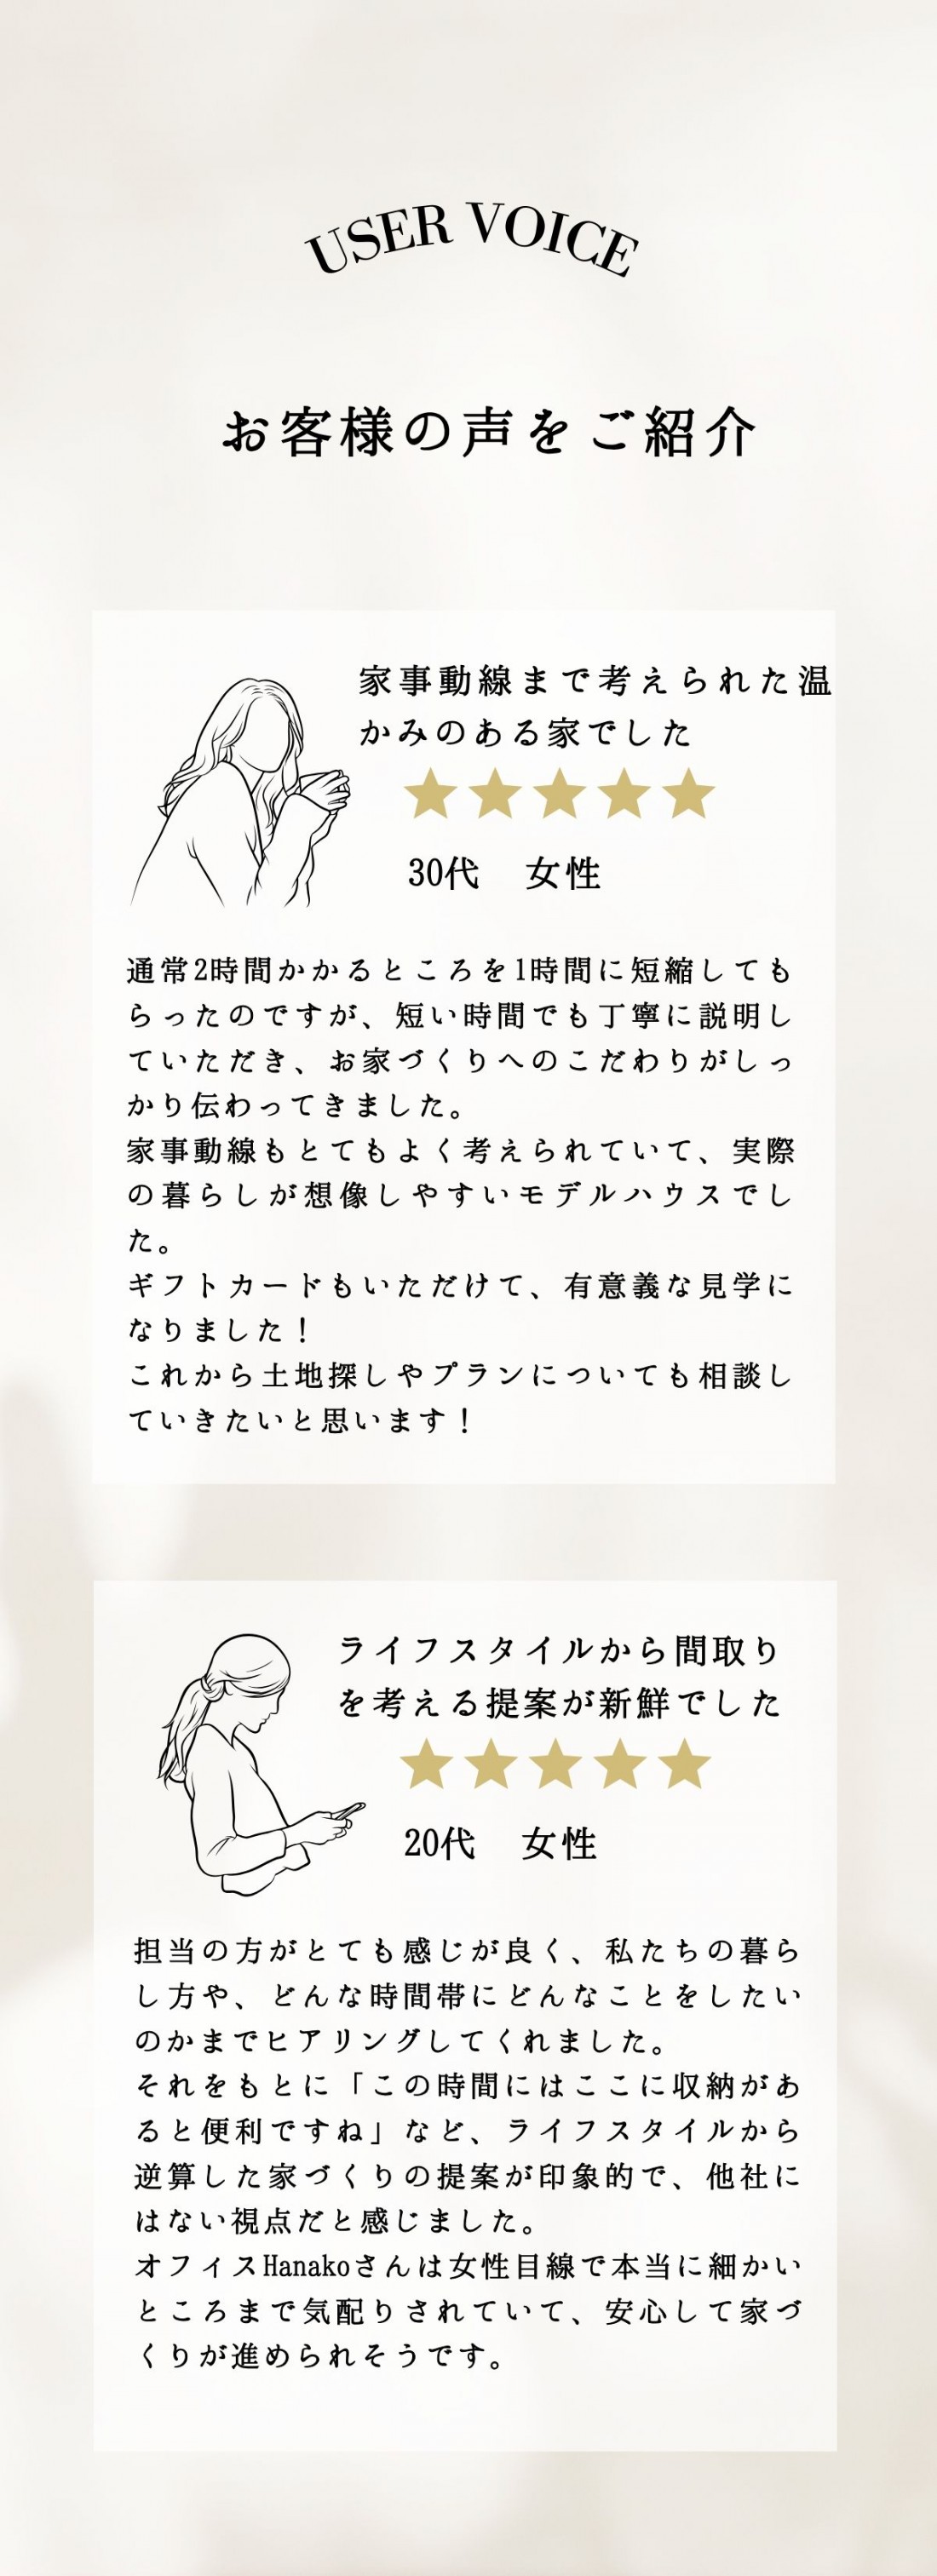 USER VOICE
お客様の声をご紹介
家事動線まで考えられた温
かみのある家でした
30代　女性
通常2時間かかるところを1時間に短縮しても
らったのですが、短い時間でも丁寧に説明し
ていただき、お家づくりへのこだわりがしっ
かり伝わってきました。
家事動線もとてもよく考えられていて、実際
の暮らしが想像しやすいモデルハウスでし
た。
ギフトカードもいただけて、有意義な見学に
なりました！
これから土地探しやプランについても相談し
ていきたいと思います！
ライフスタイルから間取り
を考える提案が新鮮でした
20代　女性
担当の方がとても感じが良く、私たちの暮ら
し方や、どんな時間帯にどんなことをしたい
のかまでヒアリングしてくれました。
それをもとに「この時間にはここに収納があ
ると便利ですね」など、ライフスタイルから
逆算した家づくりの提案が印象的で、他社に
はない視点だと感じました。
オフィスHanakoさんは女性目線で本当に細かい
ところまで気配りされていて、安心して家づ
くりが進められそうです。